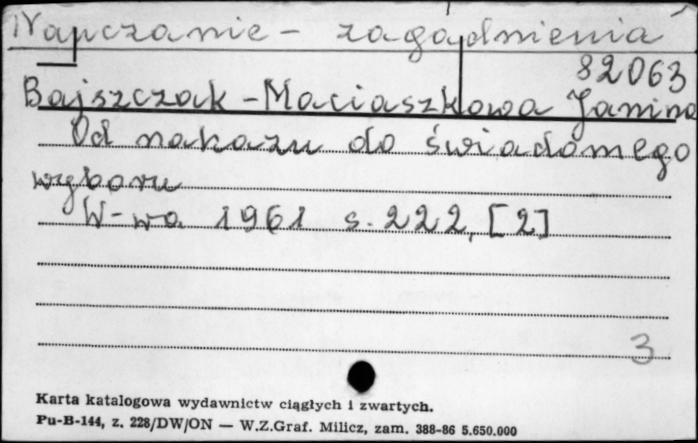 Nauczanie - zagadnienia
82063
Bajszczak-Maciaszkowa Janina
Od nakazu do świadomego
wyboru
W-wa 1961 s. 222, [2]
3
Karta katalogowa wydawnictw ciągłych i zwartych.
Pu-B-144, z. 228/DW/ON — W.Z.Graf. Milicz, zam. 388-86 5.650.000